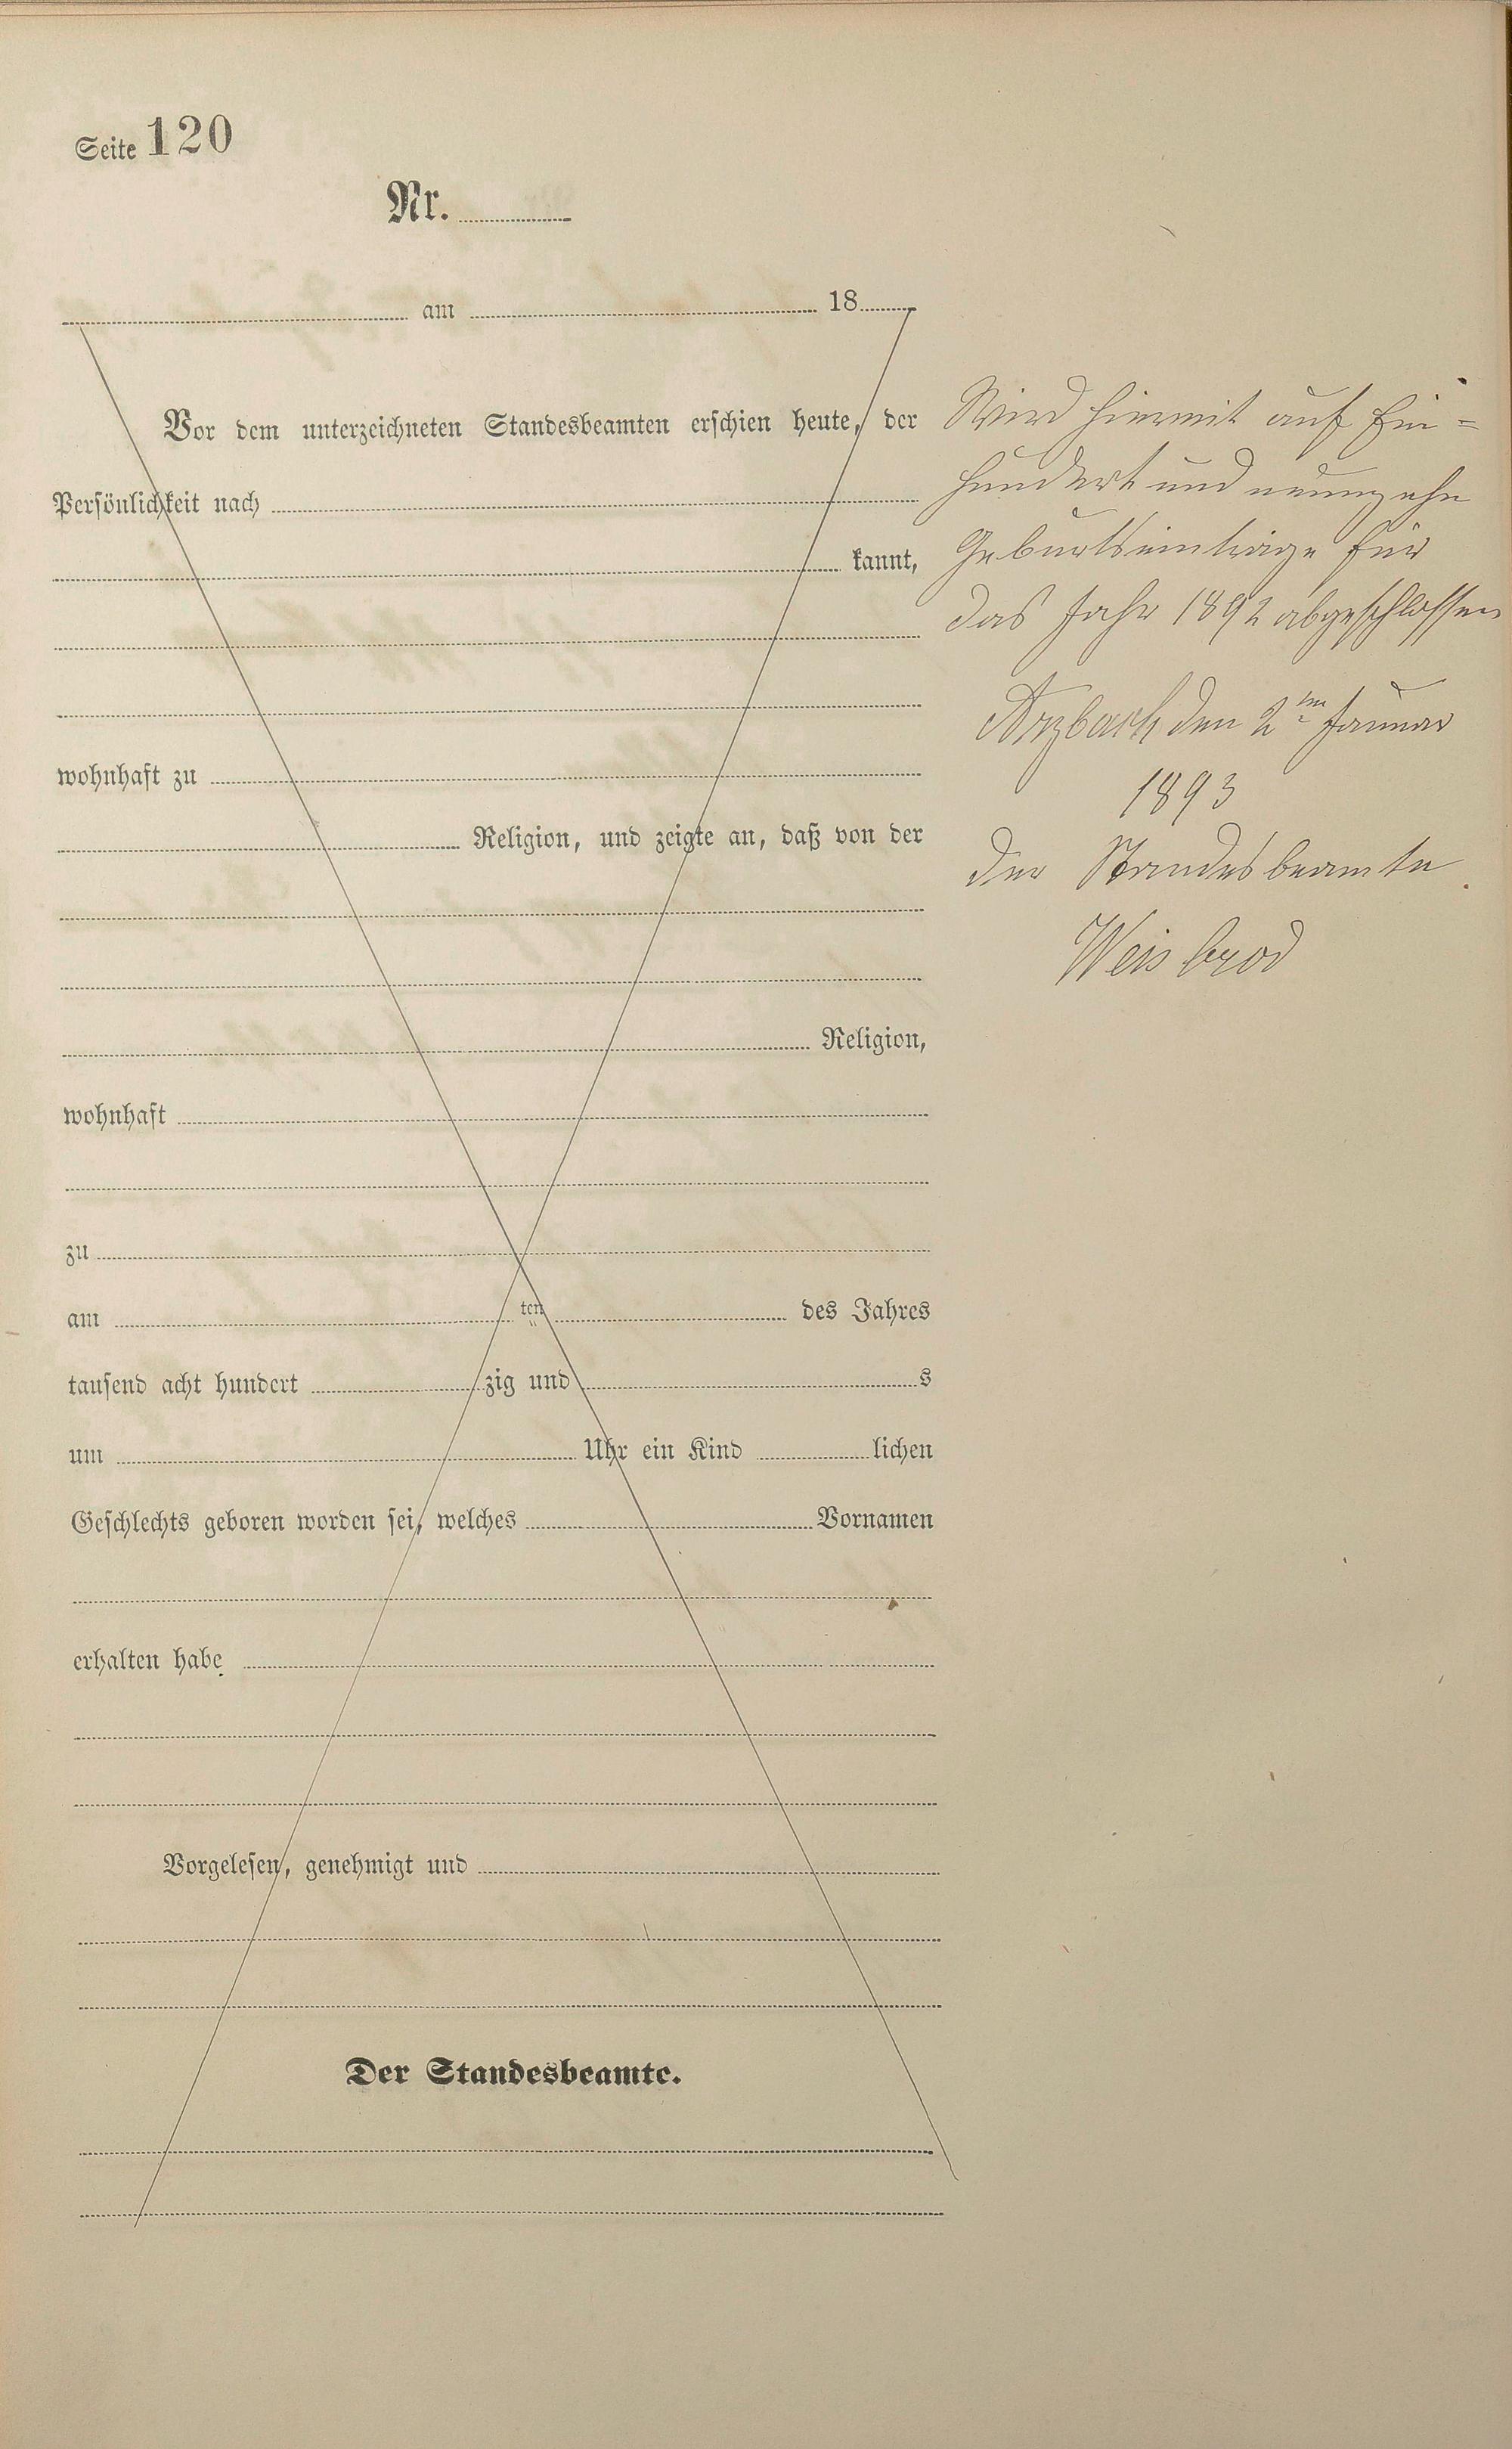 Seite 120
Nr.
am 18
Vor dem unterzeichneten Standesbeamten erschien heute, der
Persönlichkeit nach
kannt,
wohnhaft zu
Religion, und zeigte an, daß von der
Religion,
wohnhaft
zu
am ten des Jahres
tausend acht hundert zig und s
um Uhr ein Kind lichen
Geschlechts geboren worden sei, welches Vornamen
erhalten habe
Vorgelesen, genehmigt und
Der Standesbeamte.
Wird hiermit auf Ein=
hundert und neunzehn
Geburtseinträge für
das Jahr 1892 abgeschlossen
Arzbach den 2ten Januar
1893
Der Standesbeamte
Weisbrod